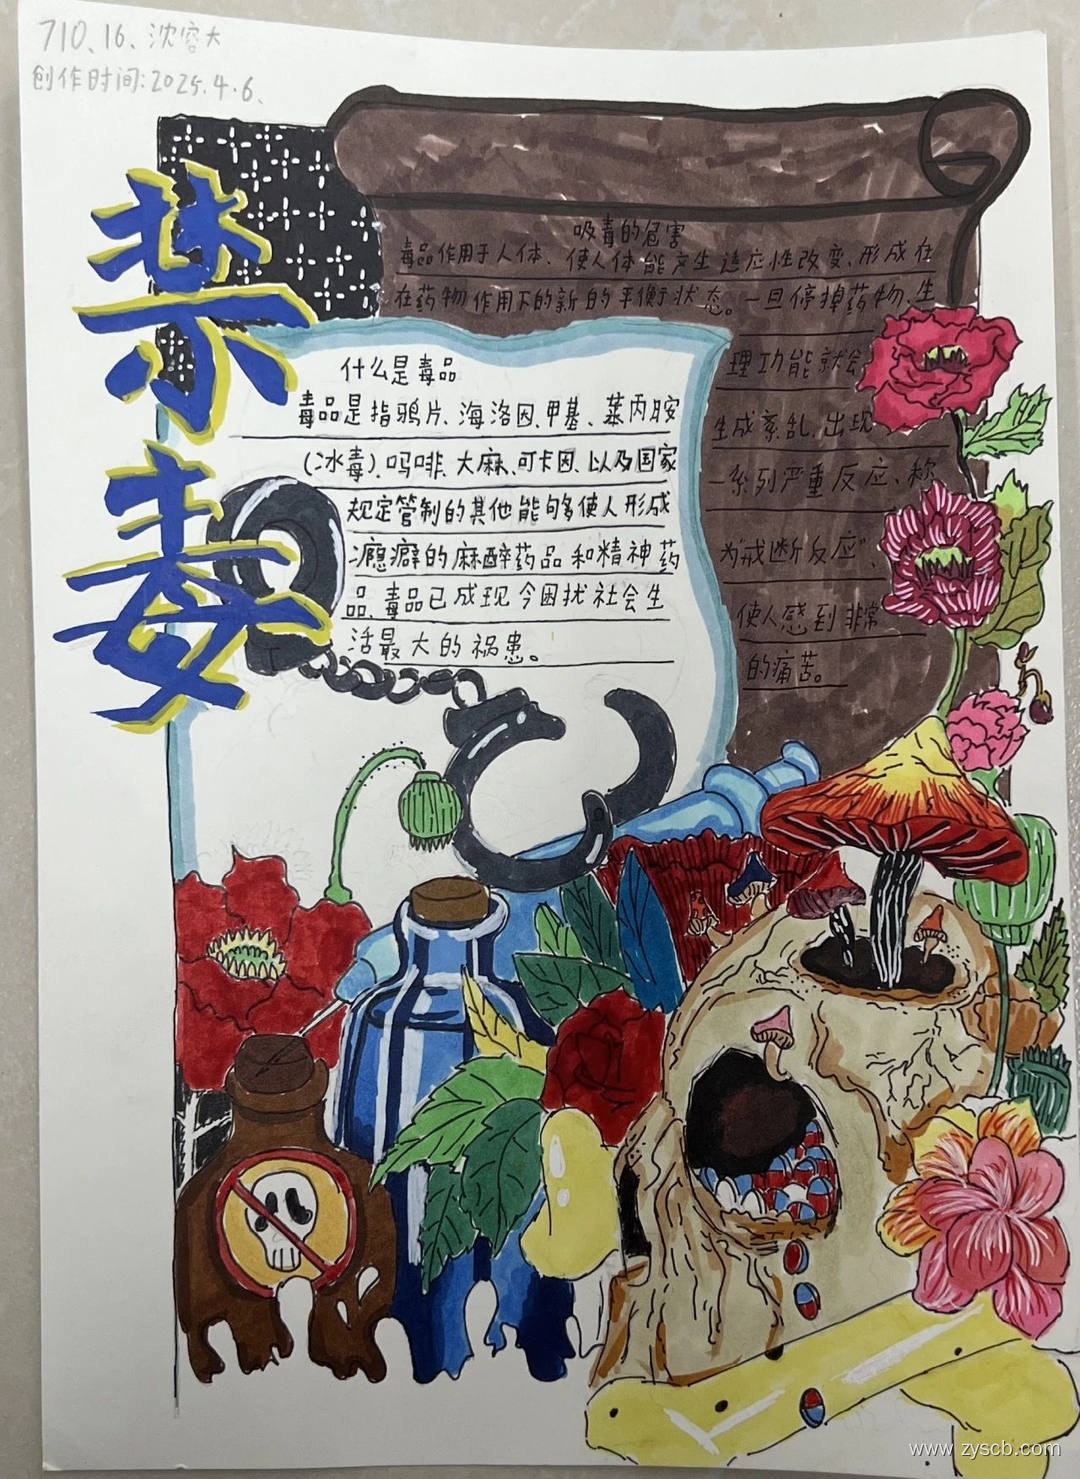 710、16、沈容大
创作时间:2025.4.6、
禁毒
吸毒的危害
毒品作用于人体、使人体能产生适应性改变、形成在
在药物作用下的新的平衡状态。一旦停掉药物、生
理功能就会
生成紊乱、出现
一系列严重反应、称
为“戒断反应”、
使人感到非常
的痛苦。
什么是毒品
毒品是指鸦片、海洛因、甲基、苯丙胺
(冰毒)、吗啡、大麻、可卡因、以及国家
规定管制的其他能够使人形成
瘾癖的麻醉药品和精神药
品、毒品已成现今困扰社会生
活最大的祸患。
www.zyscb.com